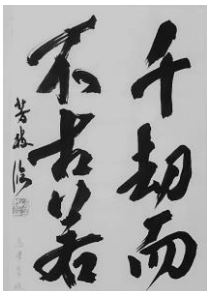 千劫而
不古若
芳臨